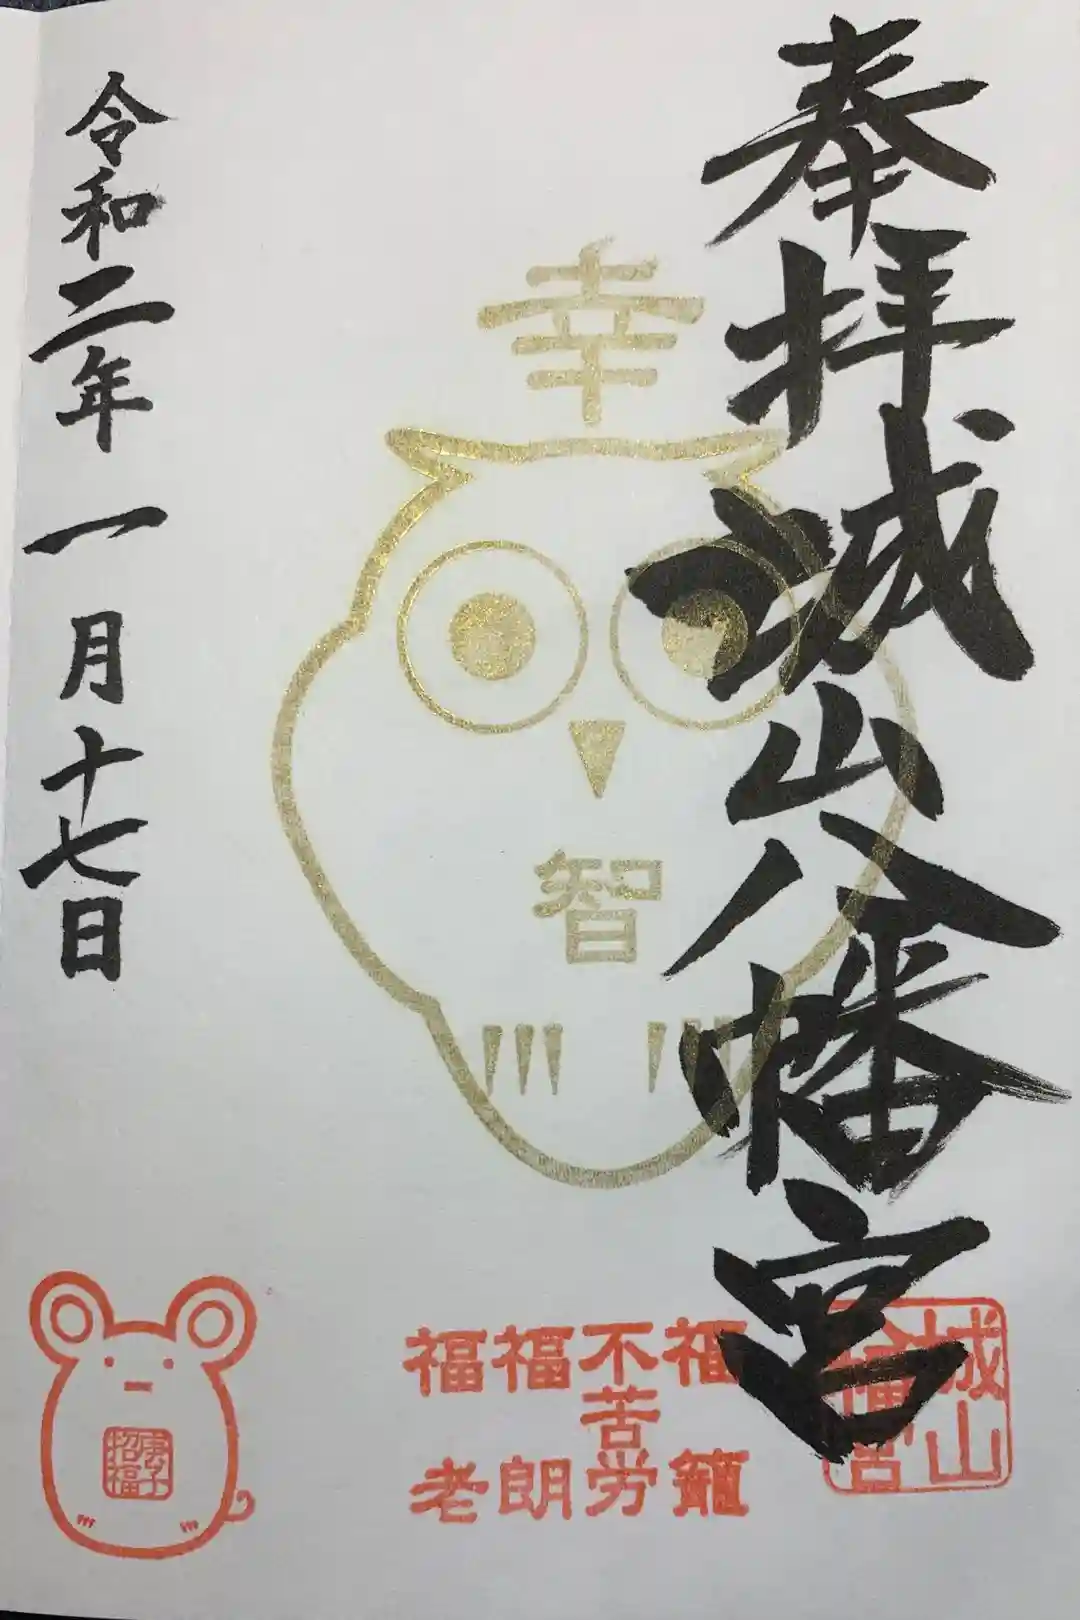 奉拝
城山八幡宮
幸
智
福籠
不苦労
福朗
福老
城山
八幡宮
令和二年 一月十七日
庚子
招福